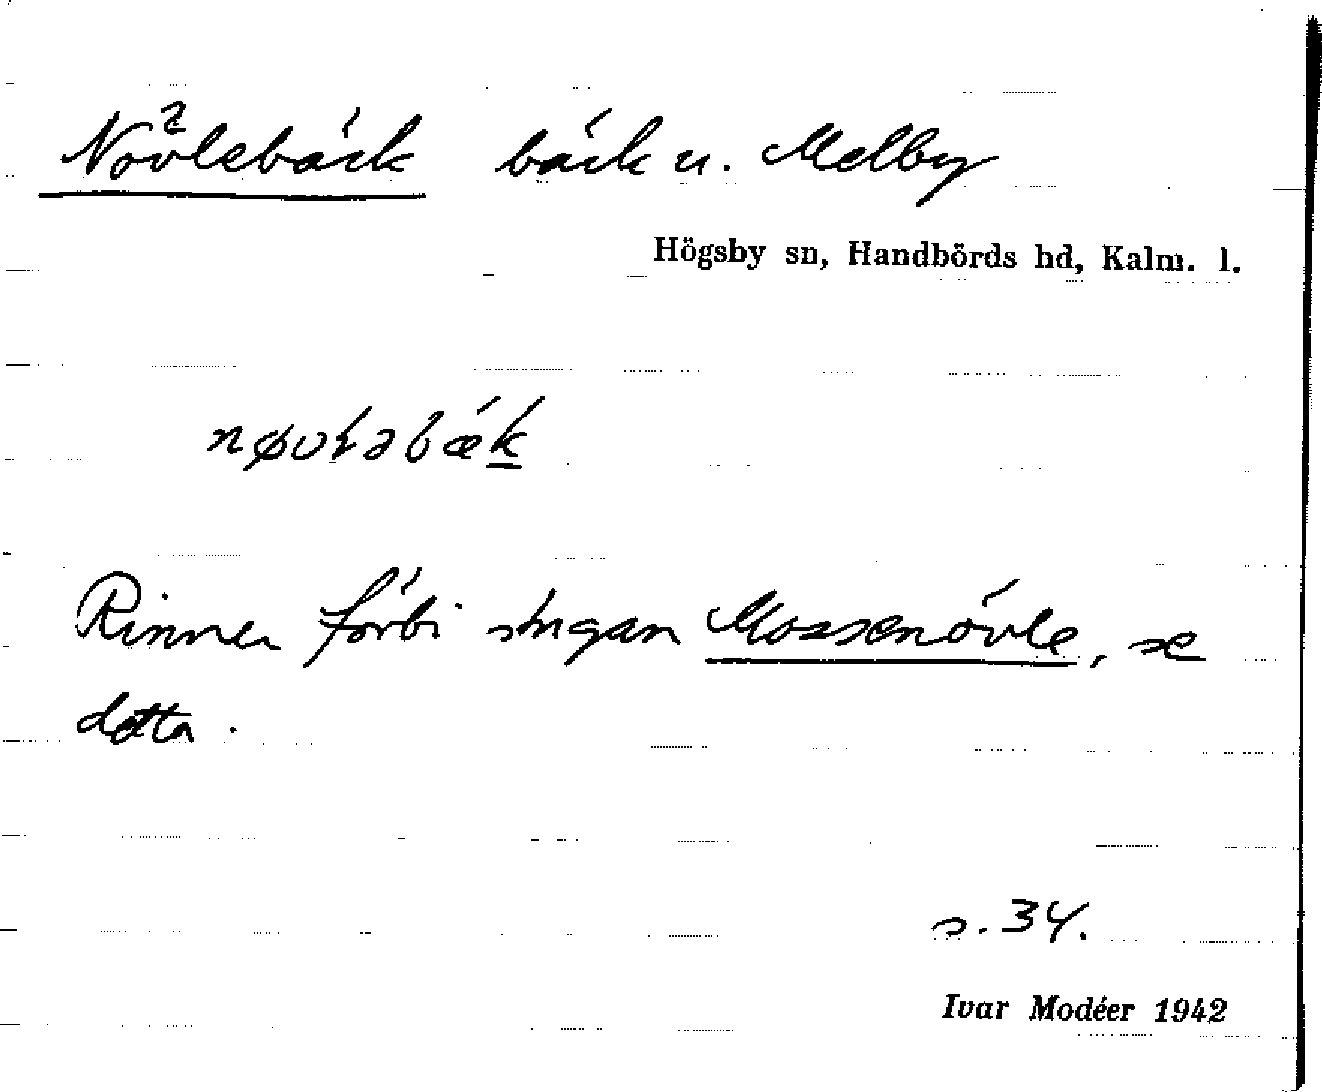 Növlebäck bäck u. Melby
Högsby sn, Handbörds hd, Kalm. l.
nøvlabæk
Rinner förbi stugan Mossenövle, se
detta.
s. 34.
Ivar Modéer 1942